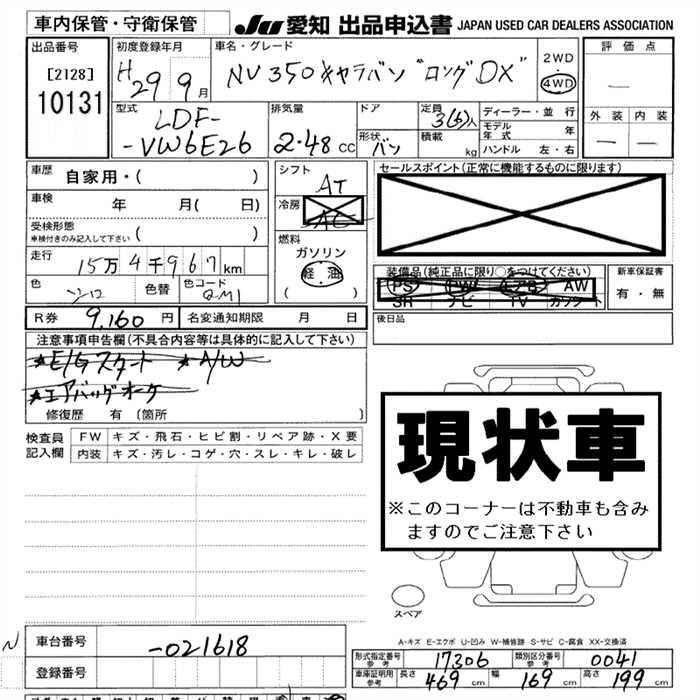 車内保管・守衛保管
JU 愛知 出品申込書 JAPAN USED CAR DEALERS ASSOCIATION
出品番号
[2128]
10131
初度登録年月
H29 9月
車名・グレード
NV350キャラバン "ロングDX"
2WD
4WD
評価点
外装 内装
型式
LDF-
-VW6E26
排気量
2.48 cc
ドア
形状 バン
定員 3(6)人
積載 kg
ディーラー・並行
モデル年式 年
ハンドル 左・右
車歴 自家用・( )
車検 年 月( 日)
受検形態 ( )
車検付きのみ記入して下さい
走行 15万4千967km
色 シロ 色替 色コード QM1
シフト AT
冷房 AC
燃料
ガソリン
軽油
( )
セールスポイント(正常に機能するものに限ります)
装備品(純正品に限り○をつけてください)
PS PW エアB AW
SR ナビ TV カセット
新車保証書
有・無
R券 9,160円 名変通知期限 月 日
後日品
注意事項申告欄(不具合内容等は具体的に記入して下さい)
*E/Gスタート *A/W
*エアバッグオーケー
修復歴 有(箇所 )
検査員記入欄
FW キズ・飛石・ヒビ割・リペア跡・X要
内装 キズ・汚レ・コゲ・穴・スレ・キレ・破レ
現状車
※このコーナーは不動車も含み
ますのでご注意下さい
スペア
A-キズ E-エクボ U-凹み W-補修跡 S-サビ C-腐食 XX-交換済
N
車台番号 -021618
登録番号
形式指定番号 参考 17306 類別区分番号 参考 0041
車庫証明用 参考 長さ 469cm 幅 169cm 高さ 199cm